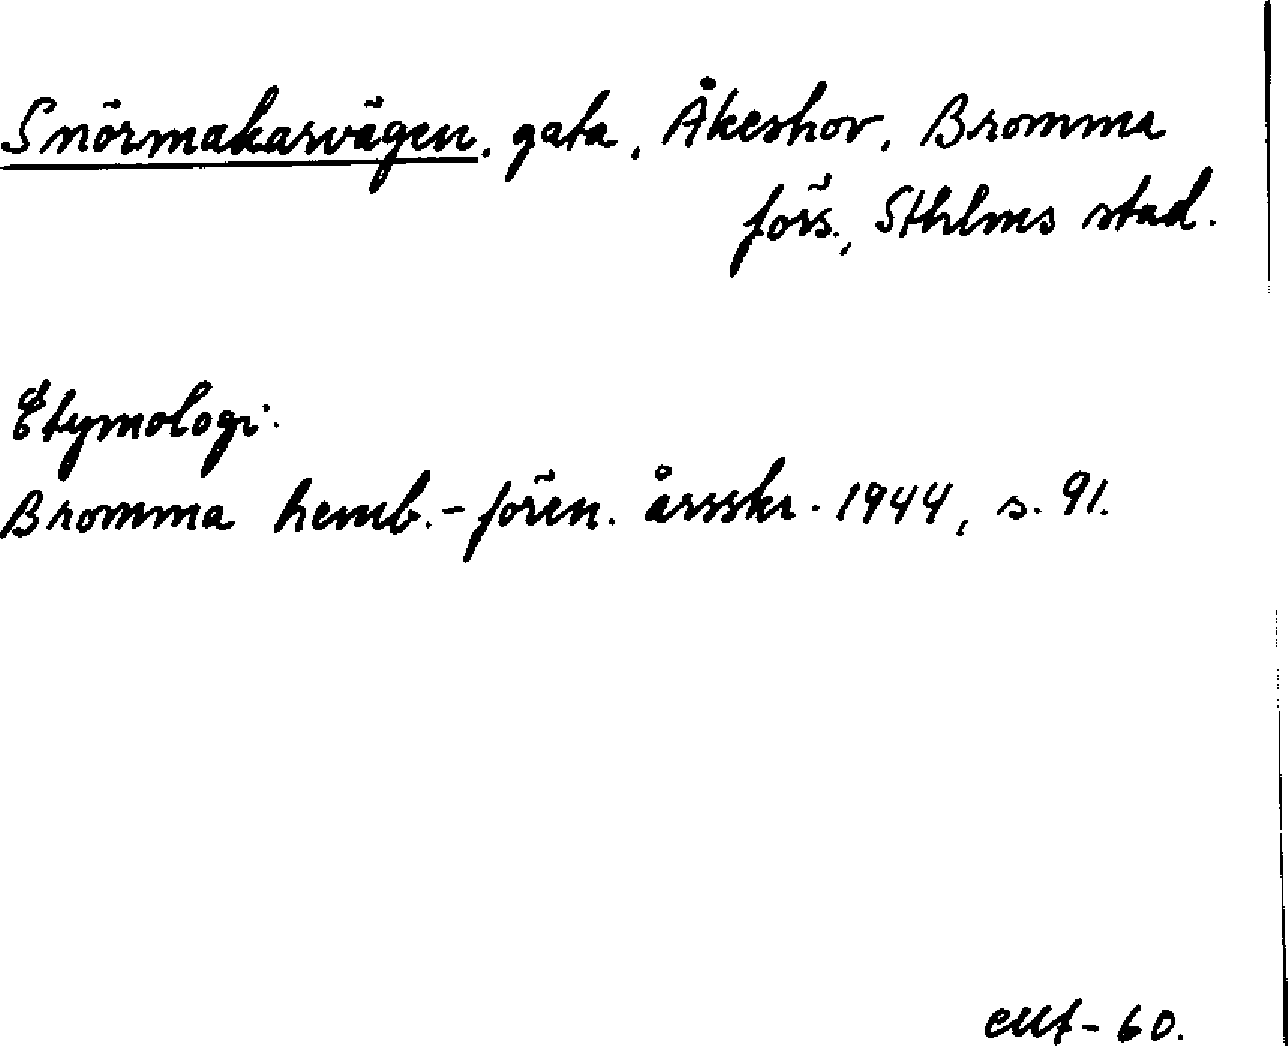 Snörmakarvägen, gata, Åkeshov, Bromma
förs., Sthlms stad.
Etymologi:
Bromma hemb.-fören. årsskr. 1944, s. 91.
60.